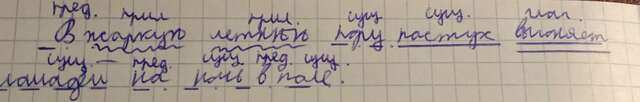 пред. прил прил. сущ сущ. глаг.
В жаркую летнюю пору пастух выгоняет
сущ — пред. сущ пред. сущ.
лошадей на ночь в поле.